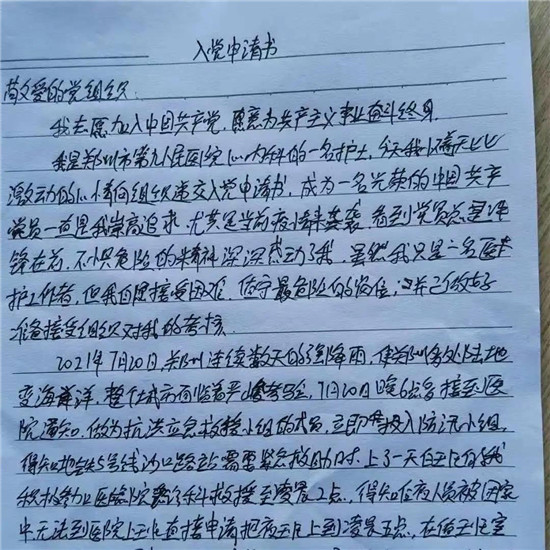 入党申请书
敬爱的党组织：
我志愿加入中国共产党，愿意为共产主义事业奋斗终身。
我是郑州市第九人民医院心内科的一名护士，今天我以无比
激动的心情向组织递交入党申请书，成为一名光荣的中国共产
党员一直是我崇高追求，尤其是当前疫情来袭，看到党员总是冲
锋在前，不惧危险的精神深深感动了我，虽然我只是一名医
护工作者，但我自愿接受困难，坚守最危险的岗位，并已做好
准备接受组织对我的考核。
2021年7月20日，郑州连续数天的强降雨，使郑州多处陆地
变海洋，整个城市面临着严峻考验，7月20日晚6点多接到医
院通知，做为抗洪应急救援小组的成员，立即投入防汛小组，
得知地铁5号线沙口路站需要紧急救助时，上了一天白班的我
积极参加医院救援至凌晨2点，得知值夜人员被困家
中无法到医院上班直接申请把夜班上到凌晨五点，在值班室